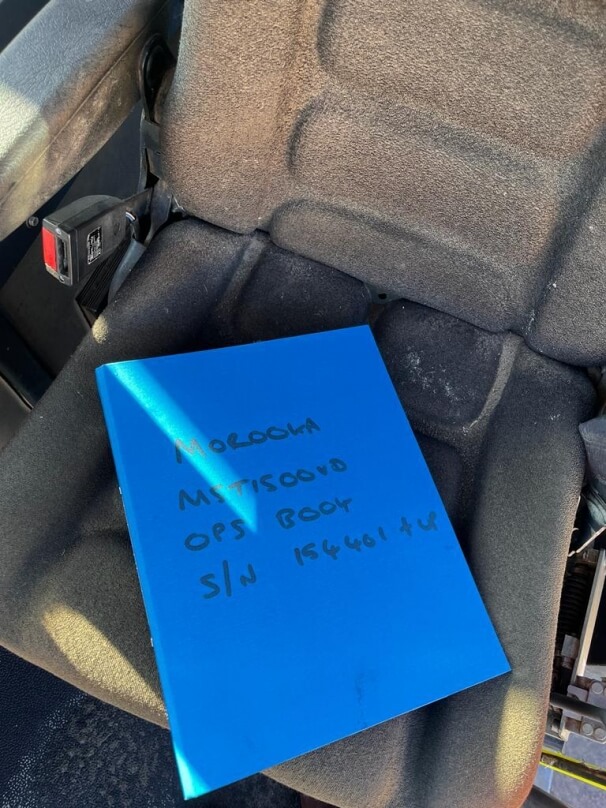 MOROOKA
MST1500VD
OPS BOOK
S/N 154401 + UP